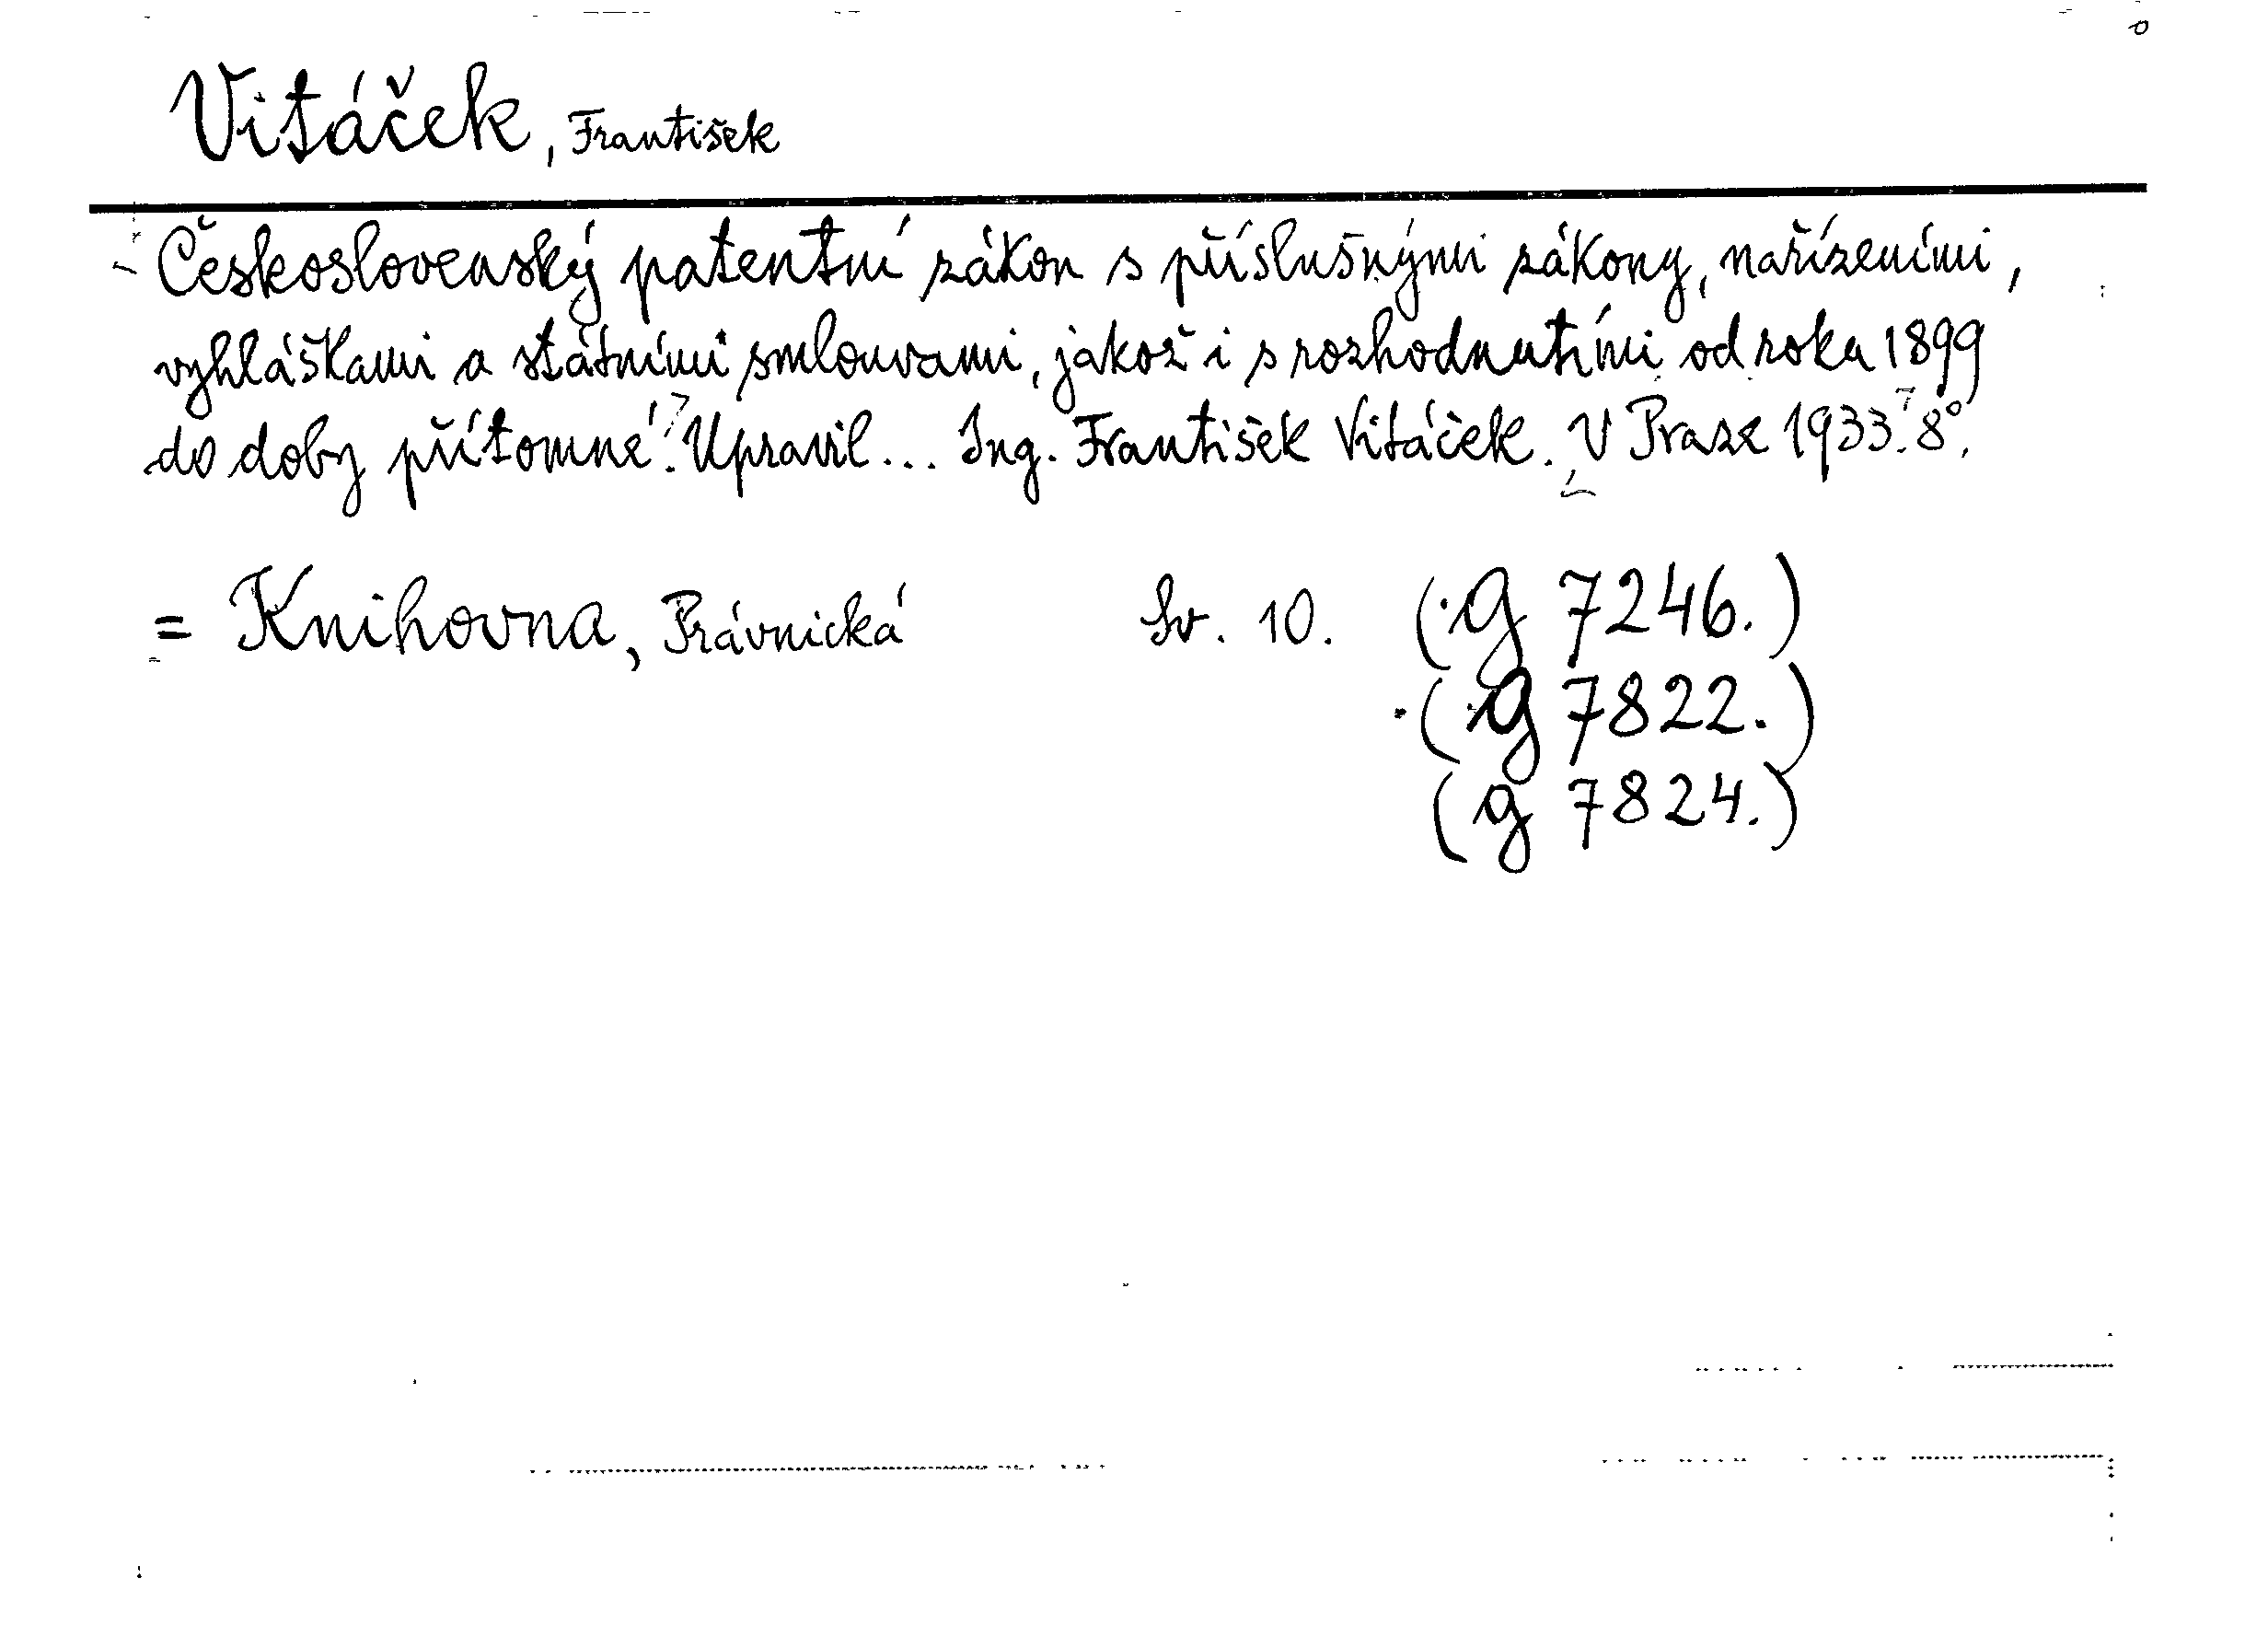 Vitáček, František
Československý patentní zákon s příslušnými zákony, nařízeními,
vyhláškami a státními smlouvami, jakož i s rozhodnutími od roku 1899
do doby přítomné. Upravil... Ing. František Vitáček. V Praze 1933. 8°.
= Knihovna, Právnická Sv. 10. (g 7246.)
(g 7822.)
(g 7824.)